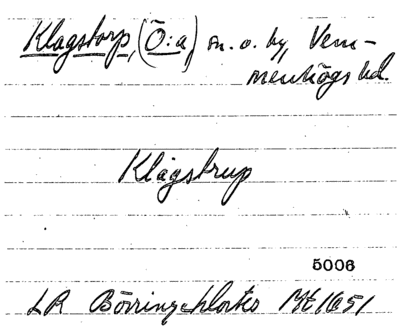 Klagstorp, (Ö:a) sn. o. by, Vem-
menhögs hd.
Klågstrup
5006
LR Börringekloster Mt 1651